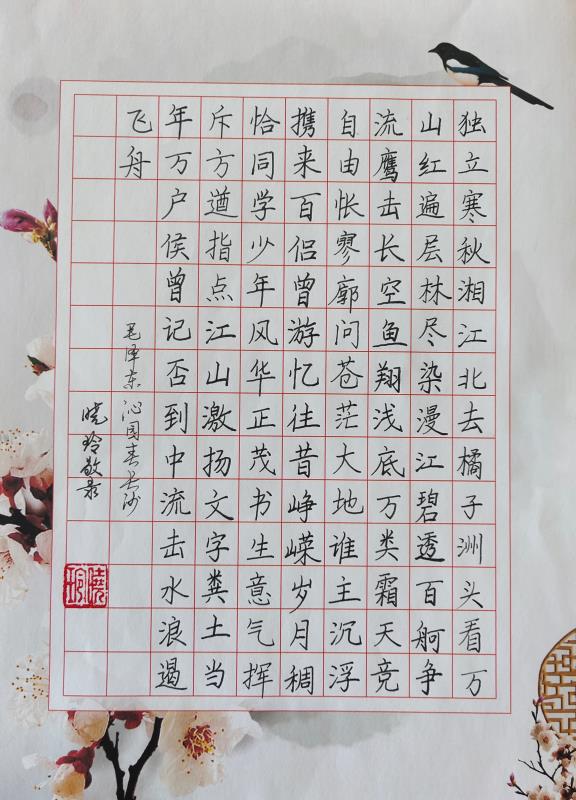 独立寒秋湘江北去橘子洲头看万
山红遍层林尽染漫江碧透百舸争
流鹰击长空鱼翔浅底万类霜天竞
自由怅寥廓问苍茫大地谁主沉浮
携来百侣曾游忆往昔峥嵘岁月稠
恰同学少年风华正茂书生意气挥
斥方遒指点江山激扬文字粪土当
年万户侯曾记否到中流击水浪遏
飞舟
毛泽东沁园春长沙
晓玲敬录
曉玲